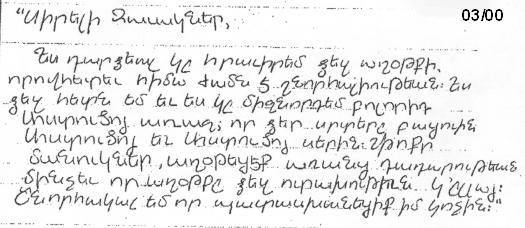 03/00
"Սիրելի Զաւակներ,
Ես դարձեալ կը հրաւիրեմ ձեզ աղօթքի,
որովհետեւ հիմա ժամն է շնորհալիութեան։ Ես
ձեզ հետն եմ եւ ես կը միջնորդեմ բոլորիդ
Աստուծոյ առաջ, որ ձեր սրտերը բացուին
Աստուծոյ եւ Աստուծոյ սերին։ Փոքր
մանուկներ, աղօթեցէք առանց դադարութեան
մինչեւ որ աղօթքը ձեզ ուրախութիւն կ'ըլլայ։
Շնորհակալ եմ որ պատասխանեցիք իմ կոչին։"